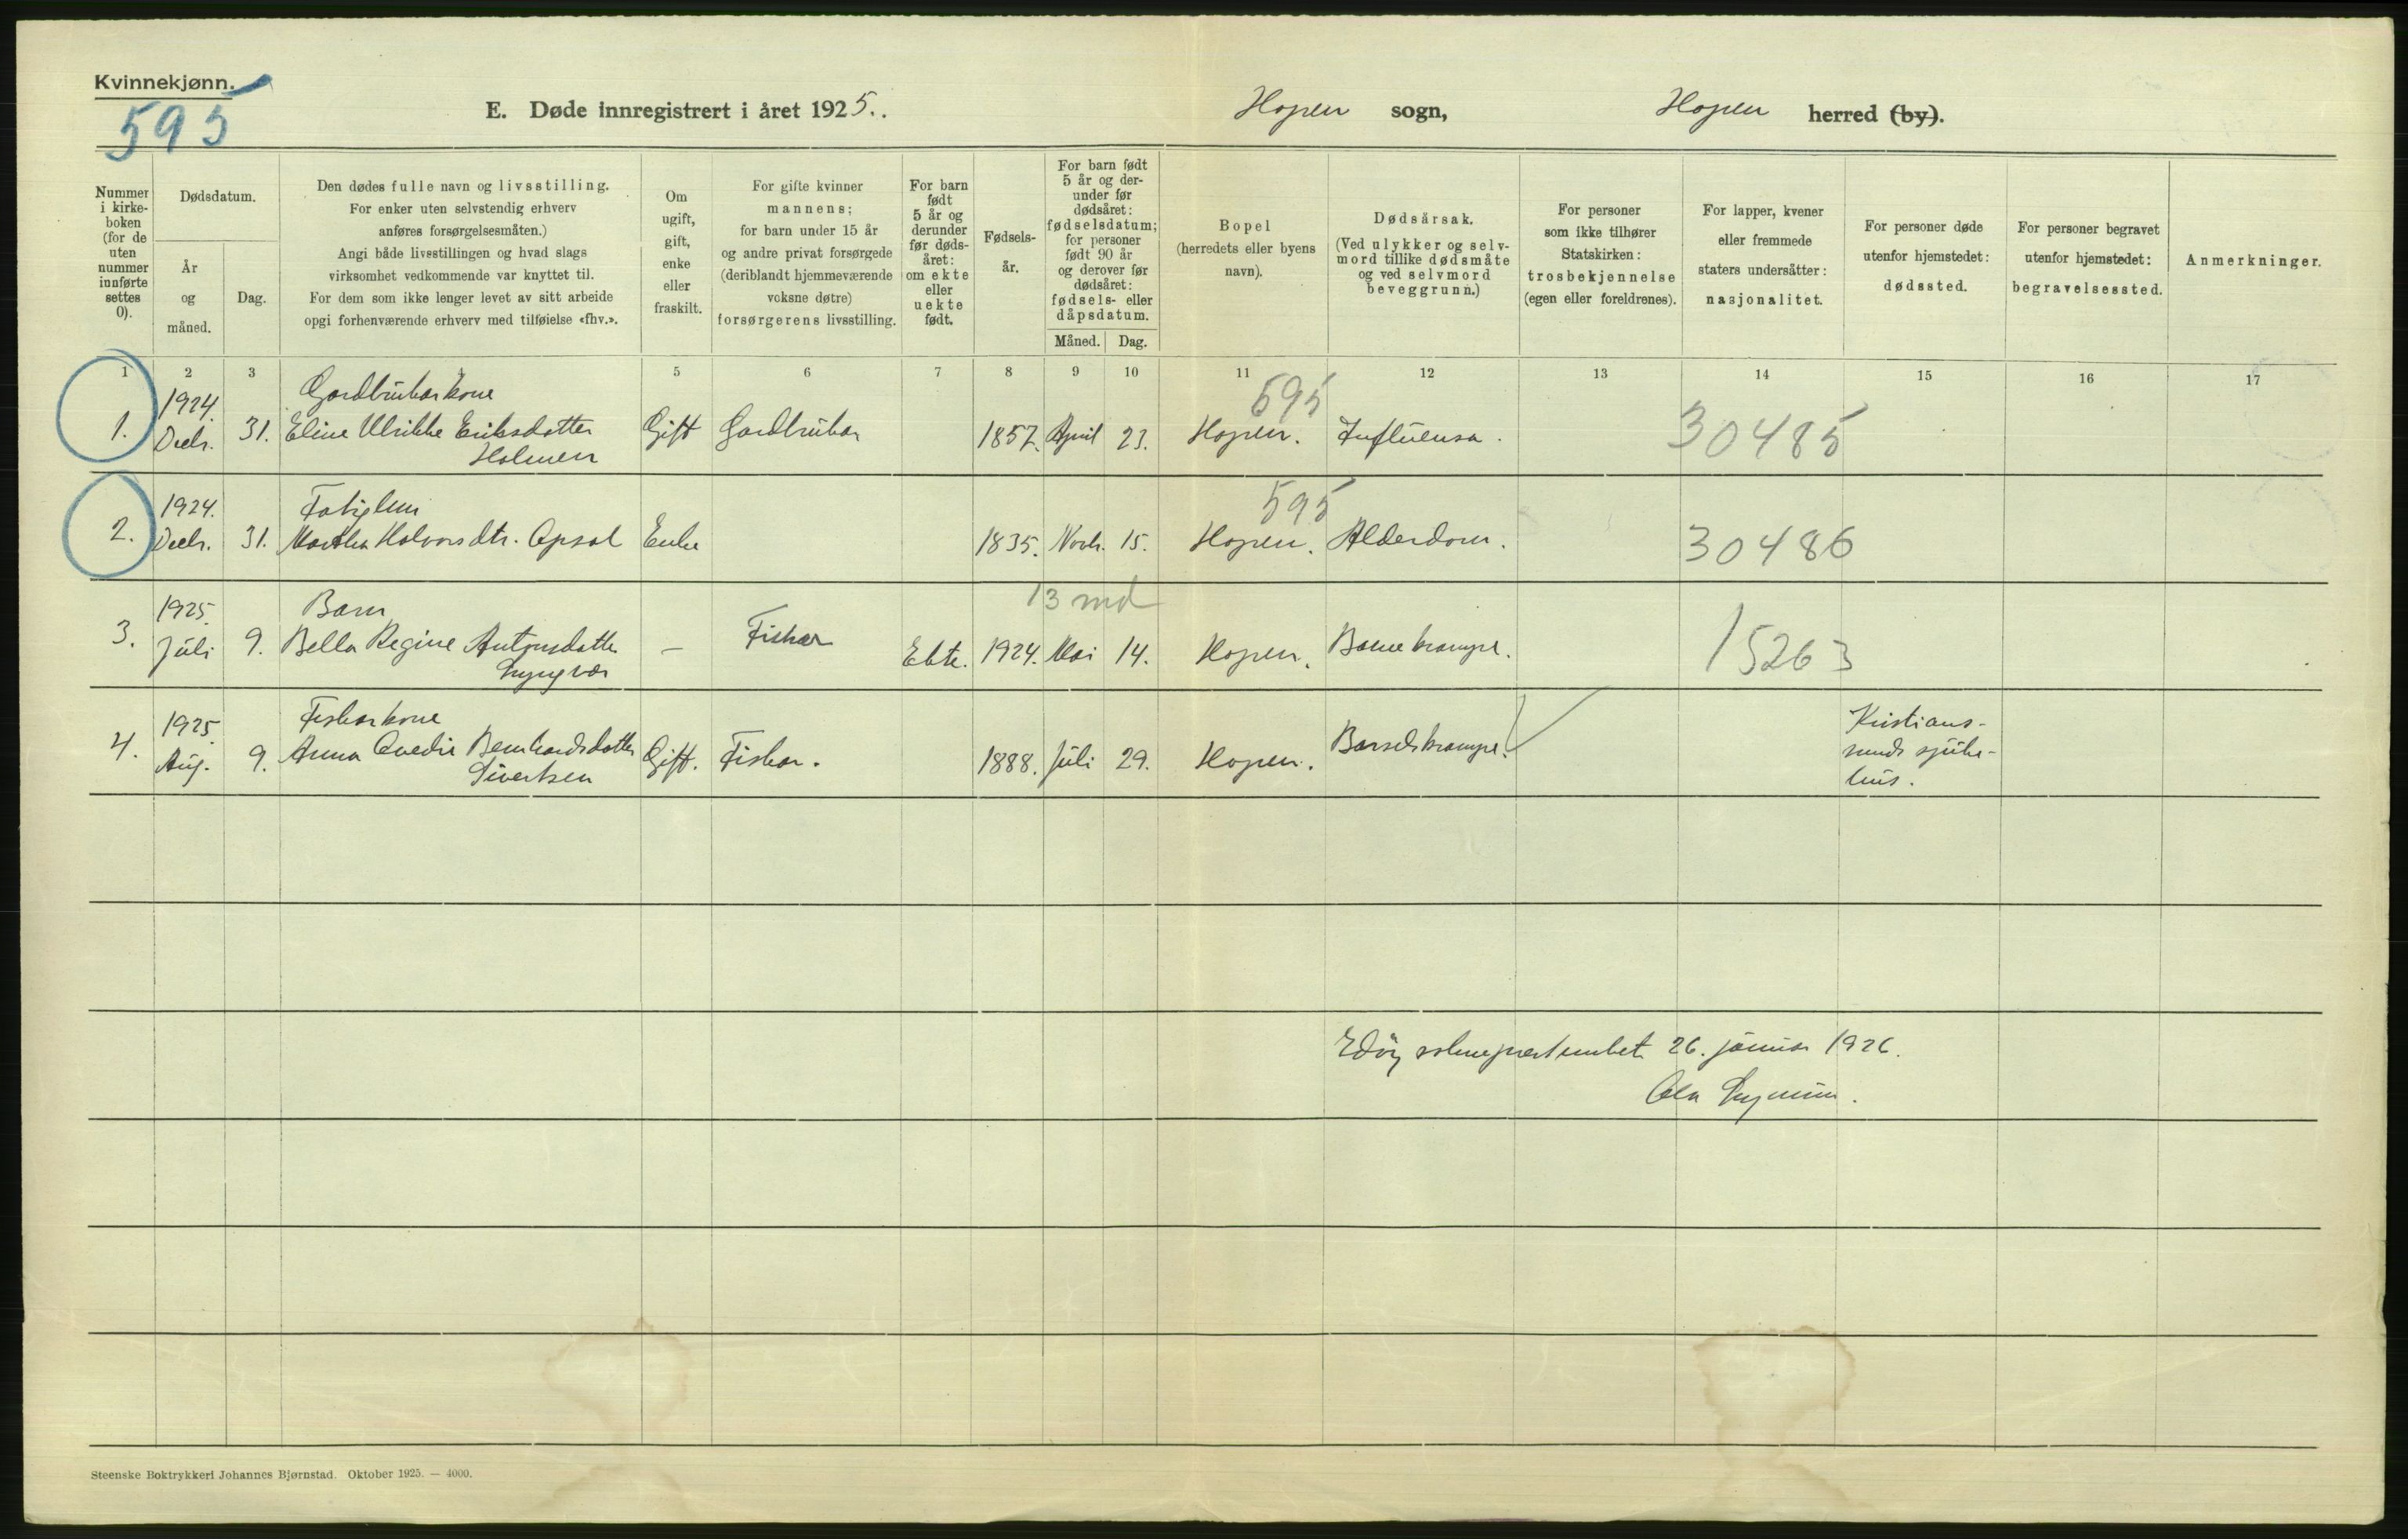 Kvinnekjønn.
595
E. Døde innregistrert i året 1925.
Hopen sogn, Hopen herred (by).
Nummer i kirke-boken (for de uten nummer innførte settes 0).
Dødsdatum.
År og måned.
Dag.
Den dødes fulle navn og livsstilling.
For enker uten selvstendig erhverv
anføres forsørgelsesmåten.)
Angi både livsstillingen og hvad slags
virksomhet vedkommende var knyttet til.
For dem som ikke lenger levet av sitt arbeide
opgi forhenværende erhverv med tilføielse «fhv.».
Om
ugift,
gift,
enke
eller
fraskilt.
For gifte kvinner
mannens;
for barn under 15 år
og andre privat forsørgede
(deriblandt hjemmeværende
voksne døtre)
forsørgerens livsstilling.
For barn
født
5 år og
derunder
før døds-
året:
om ekte
eller
uekte
født.
Fødsels-
år.
For barn født
5 år og der-
under før
dødsåret:
fødselsdatum;
for personer
født 90 år
og derover før
dødsåret:
fødsels- eller
dåpsdatum.
Måned. Dag.
Bopel
(herredets eller byens
navn).
Dødsårsak.
(Ved ulykker og selv-
mord tillike dødsmåte
og ved selvmord
beveggrunn.)
For personer
som ikke tilhører
Statskirken:
trosbekjennelse
(egen eller foreldrenes).
For lapper, kvener
eller fremmede
staters undersåtter:
nasjonalitet.
For personer døde
utenfor hjemstedet:
dødssted.
For personer begravet
utenfor hjemstedet:
begravelsessted.
Anmerkninger.
1 2 3 5 6 7 8 9 10 11 12 13 14 15 16 17
1924. Gardbrukarkone 595
1. Decbr. 31. Eline Ulrikke Eriksdatter Gift Gardbrukar 1857. April 23. Hopen. Influensa. 30485
Holmen
1924. Fatiglem 595
2. Decbr. 31. Martha Halvorsdtr. Opsal Enke 1835. Novbr. 15. Hopen. Alderdom. 30486
1925. Barn 13 md
3. Juli 9. Bella Regine Antonsdatter — Fiskar Ekte. 1924. Mai 14. Hopen. Barnekrampe. 15263
Lyngvær
1925. Fiskarkone Kristians-
4. Aug. 9. Anna Bernhardsdatter Gift. Fiskar. 1888. Juli 29. Hopen. Barselskrampe. sunds sjuke-
Sivertsen hus.
Edøy sokneprestembet 26. januar 1926.
Ola
Steenske Boktrykkeri Johannes Bjørnstad. Oktober 1925. — 4000.